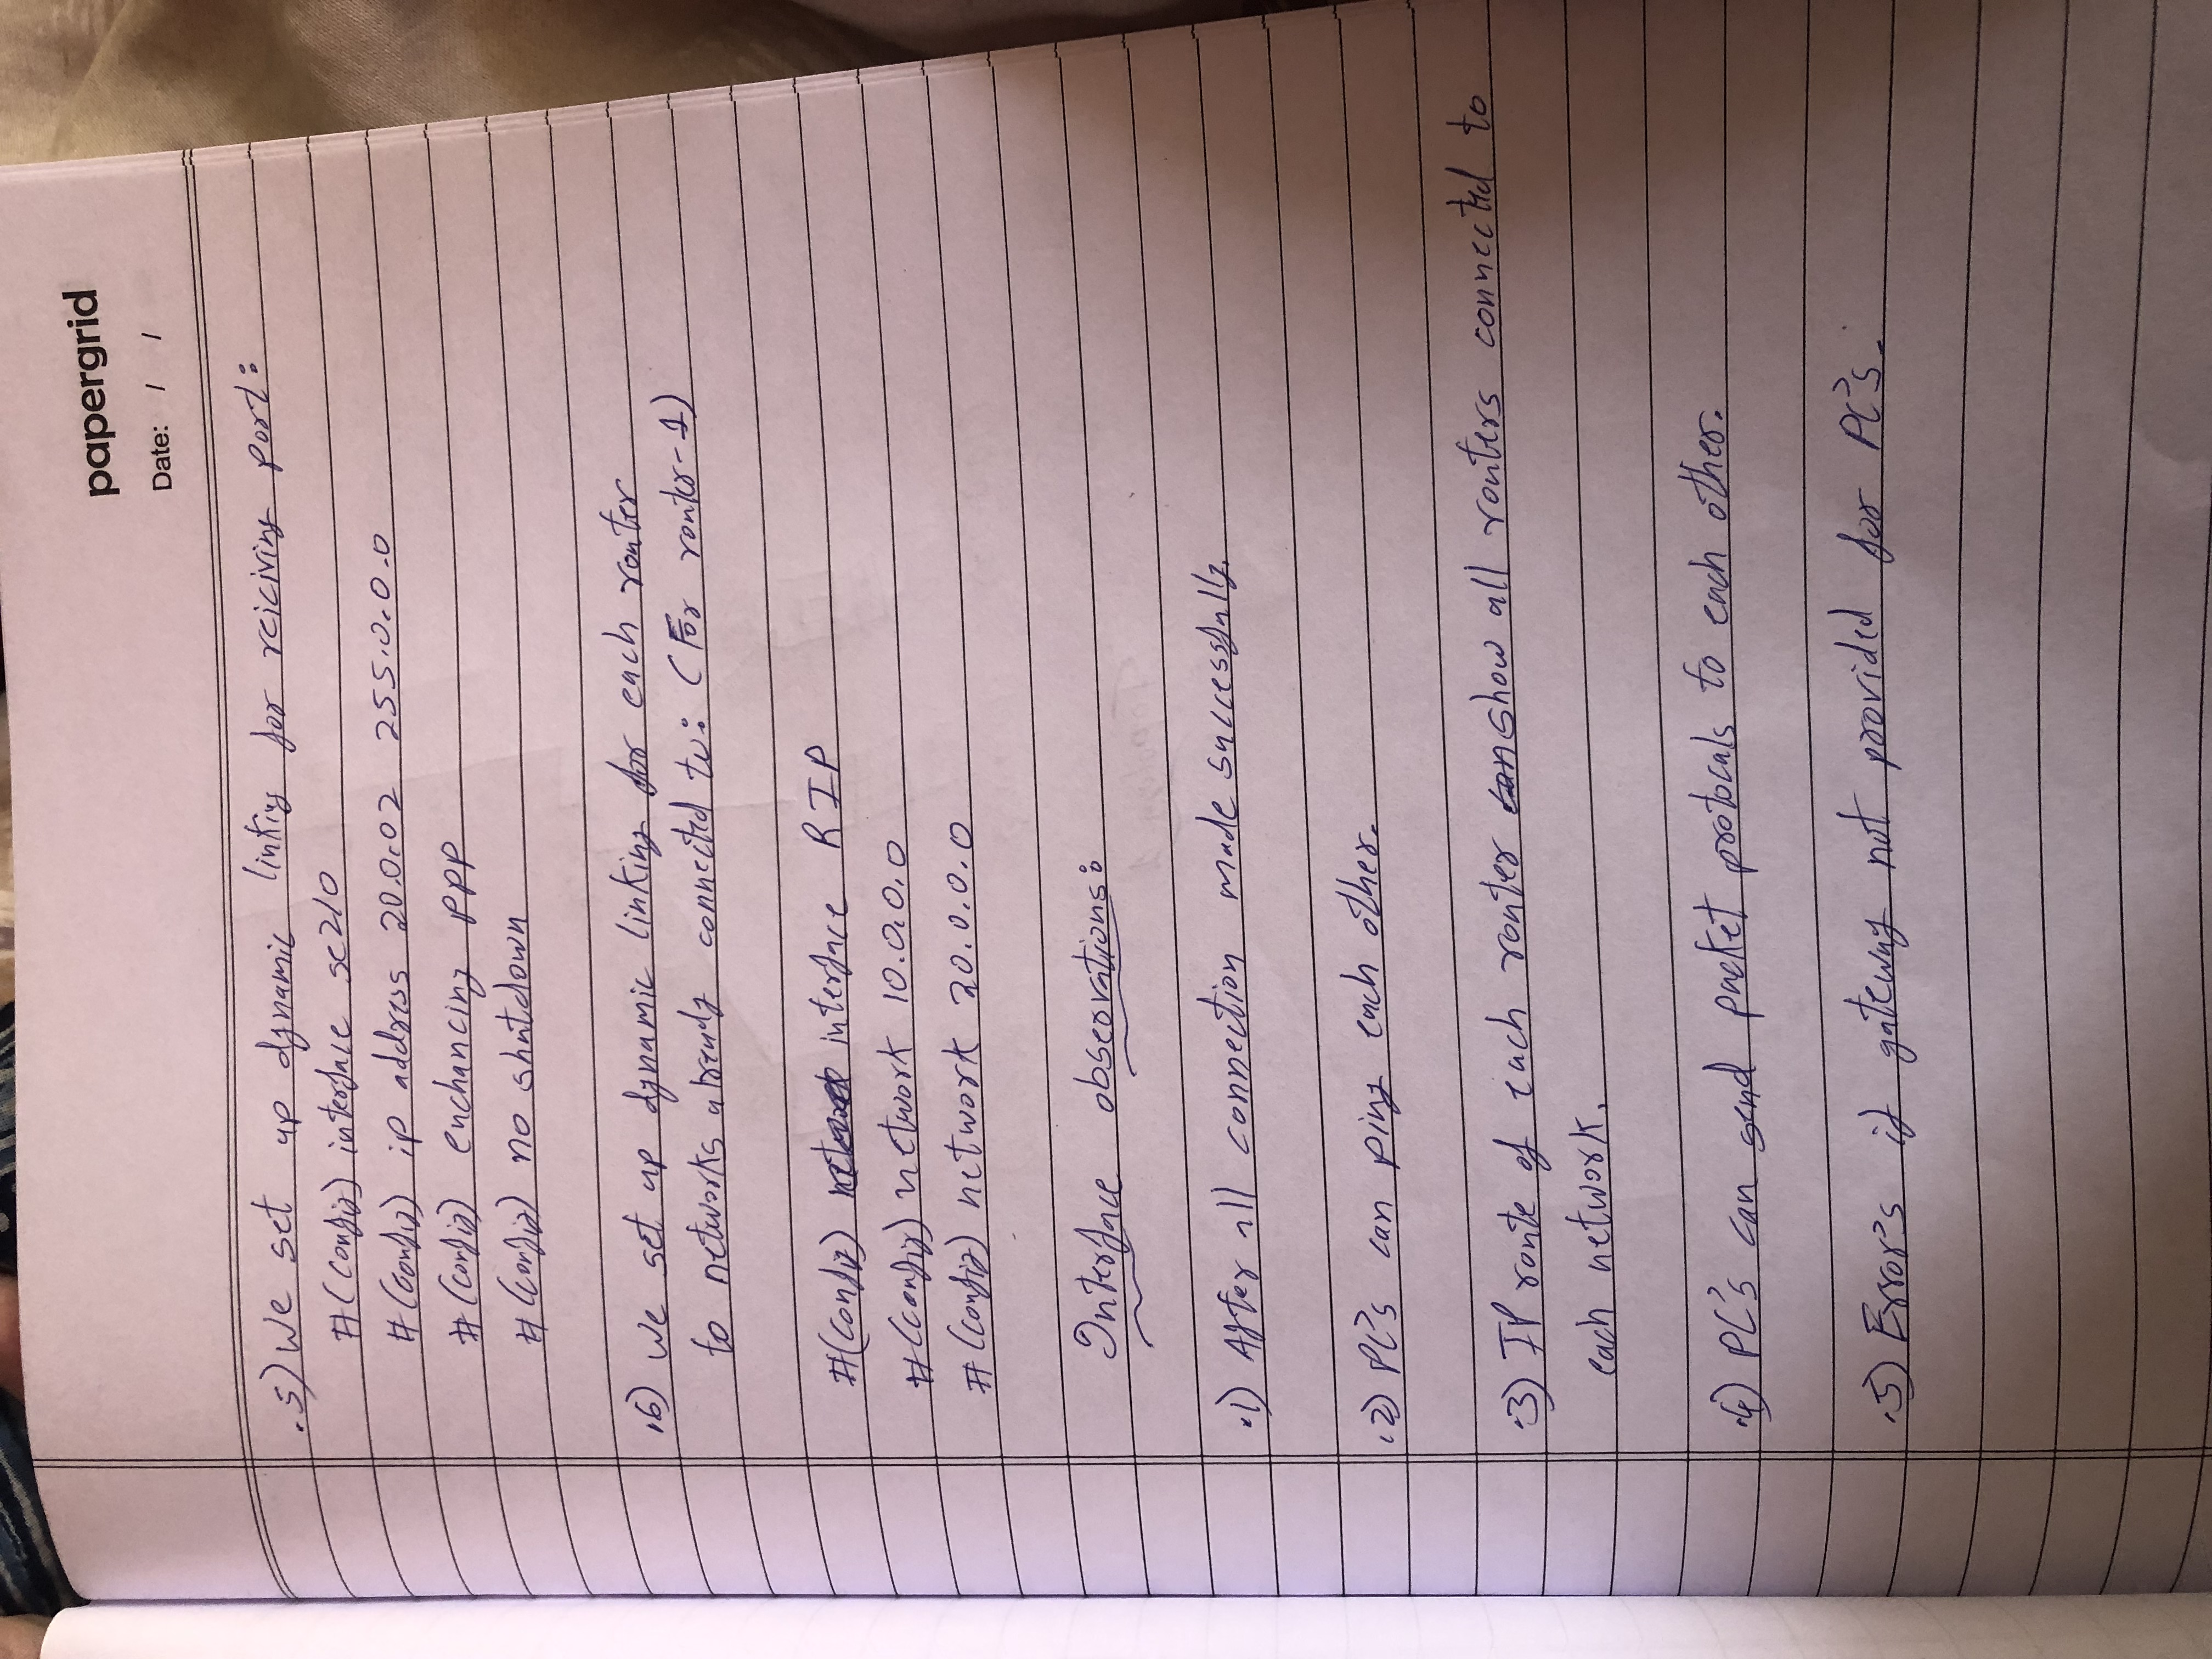 papergrid
Date: / /
.5) We set up dynamic linking for reiciving port:
#(config) interface se2/0
#(config) ip address 20.0.02 255.0.0.0
#(config) enchancing PPP
#(config) no shutdown
.6) We set up dynamic linking for each router
to networks already connected to: (For router-1)
#(config) interface RIP
#(config) network 10.0.0.0
#(config) network 20.0.0.0
Interface observations:
.1) After all connection made successfully.
.2) PC's can ping each other.
.3) IP route of each router show all routers connected to
each network.
.4) PC's can send packet protocals to each other.
.5) Error's if gateway not provided for PC's.